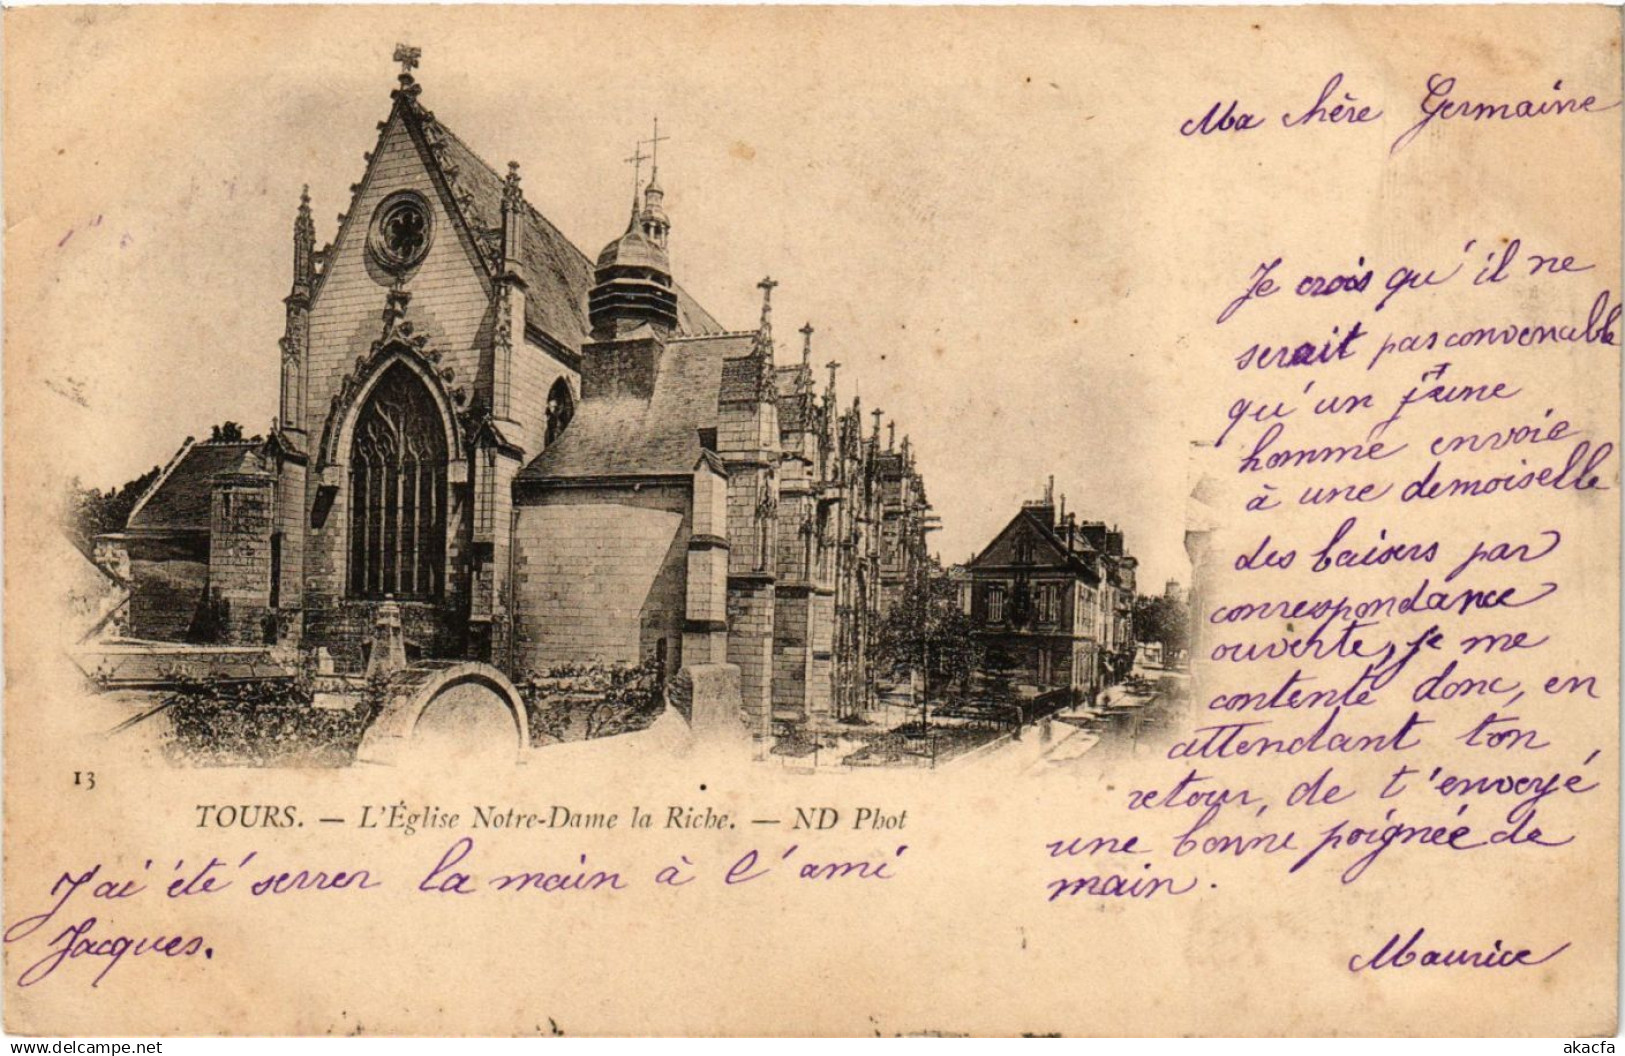 Ma chère Germaine
Je crois qu'il ne
serait pas convenable
qu'un jeune
homme envoie
à une demoiselle
des baisers par
correspondance
ouverte, je me
contente donc, en
attendant ton
retour, de t'envoyé
une bonne poignée de
main.
Maurice
13
TOURS. — L'Église Notre-Dame la Riche. — ND Phot
J'ai été serrer la main à l'ami
Jacques.
akacfa